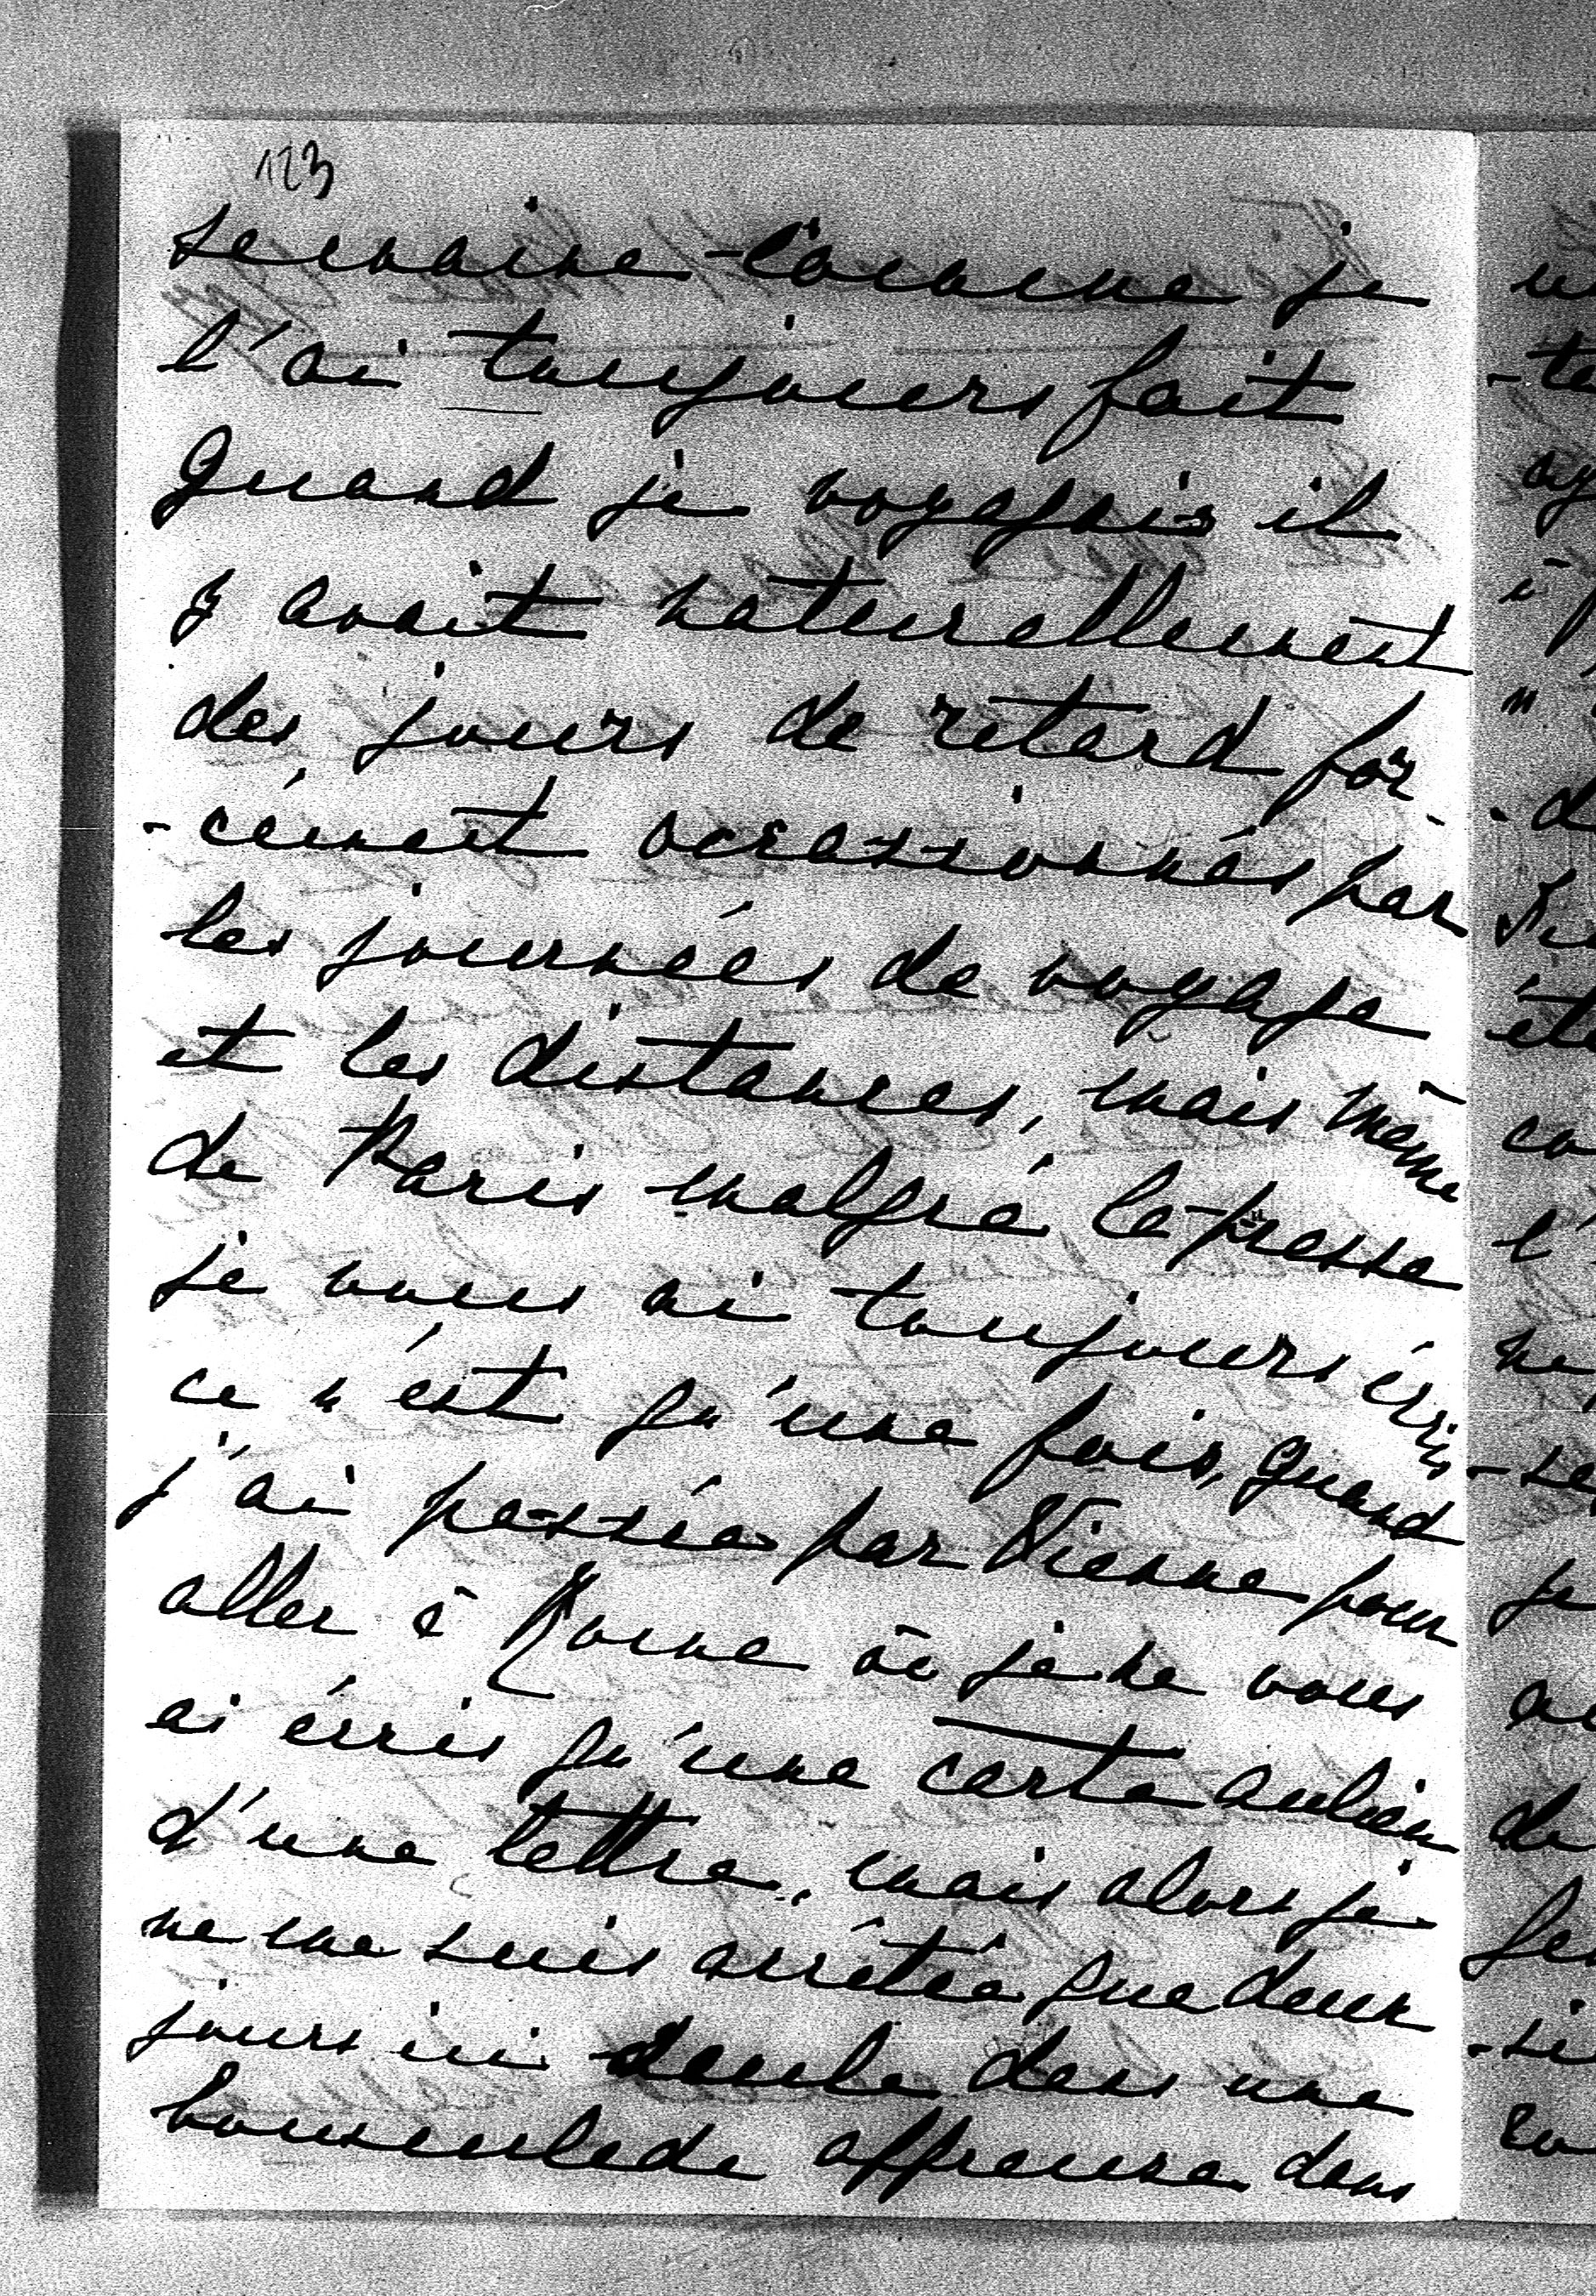 123
semaine - comme je
l'ai toujours fait
quand je voyageais il
y avait naturellement
des jours de retard for-
-cément occassionnés par
les journées de voyage
et les distances, mais même
de Paris malgré la presse
je vous ai toujours écris
ce n'est qu'une fois, quand
j'ai passée par Vienne pour
aller à Rome où je ne vous
ai écris qu'une carte aulieu
d'une lettre, mais alors je
ne me suis arrêtée que deux
jours ici seule dans une
bousculade affreuse dans